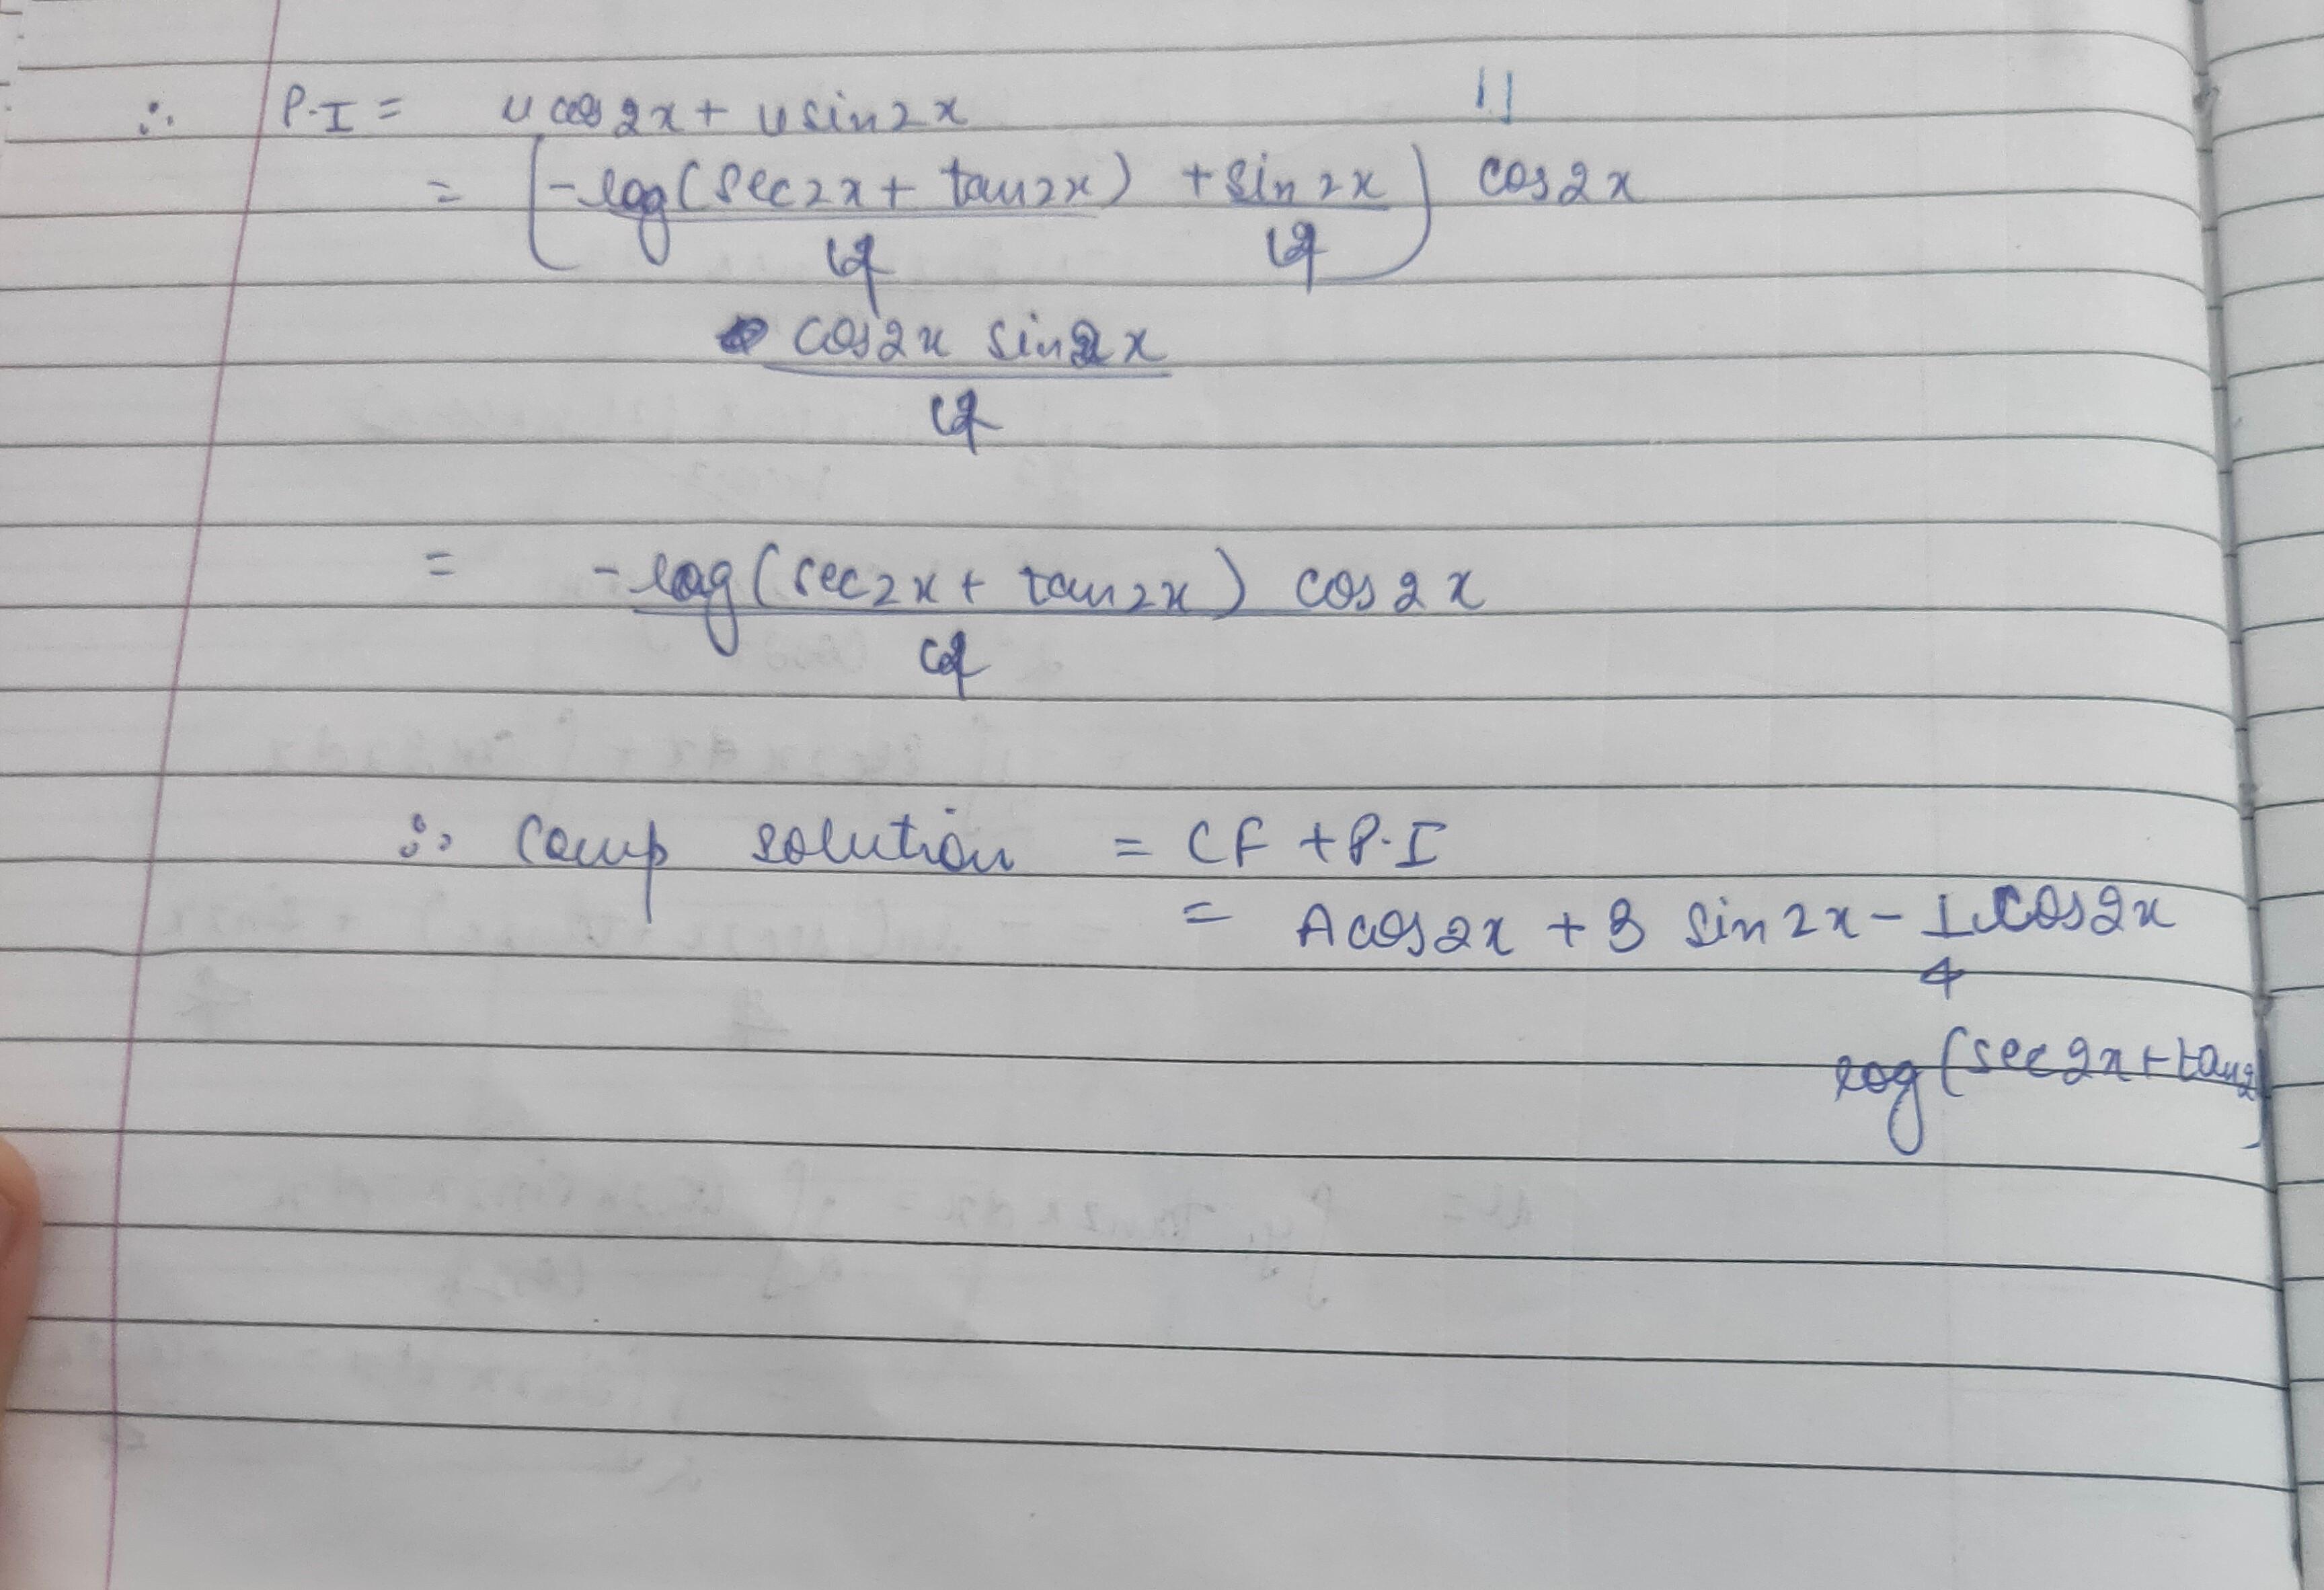 ∴ P.I = u cos2x + u sin2x
= (-log(sec2x + tan2x) + sin2x) cos2x
4 4
cos2x sin2x
4
= -log(sec2x + tan2x) cos2x
4
∴ Comp solution = CF + P.I
= A cos2x + B sin2x - 1 cos2x
4
log(sec2x + tan2
)